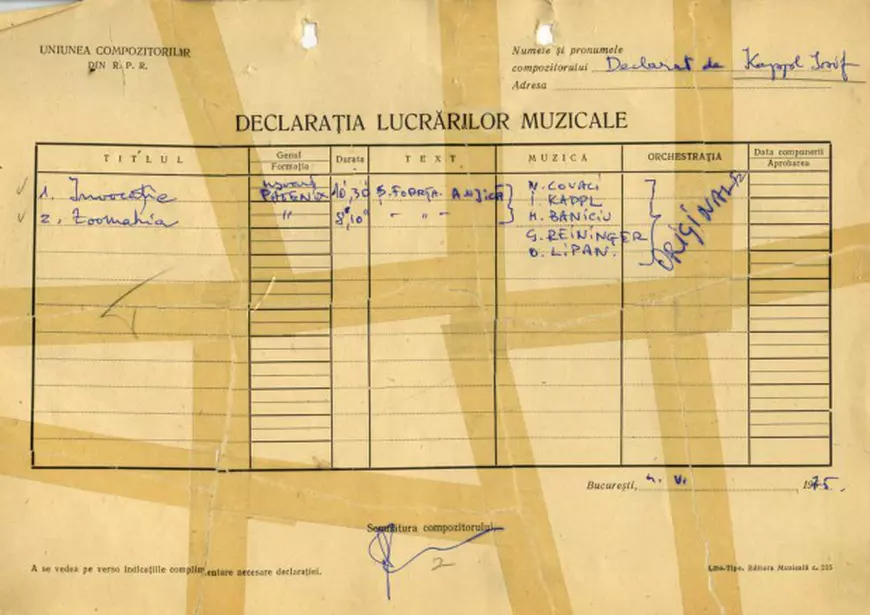 UNIUNEA COMPOZITORILOR
DIN R. P. R.
Numele și pronumele
compozitorului Declarat de Kappl Iosif
Adresa
DECLARAȚIA LUCRĂRILOR MUZICALE
TITLUL
Genul
Formația
Durata
TEXT
MUZICA
ORCHESTRAȚIA
Data compunerii
Aprobarea
1. Invocație PHOENIX 10,30 Ș. FOARȚĂ. A. UJICĂ N. COVACI
I. KAPPL
2. Zoomahia " 8,10" - " - M. BANICIU
G. REININGER
O. LIPAN.
ORIGINALĂ
București, 4. VI. 1975.
Semnătura compozitorului
2
A se vedea pe verso indicațiile complimentare necesare declarației.
Lito-Tipo. Editura Muzicală c. 225